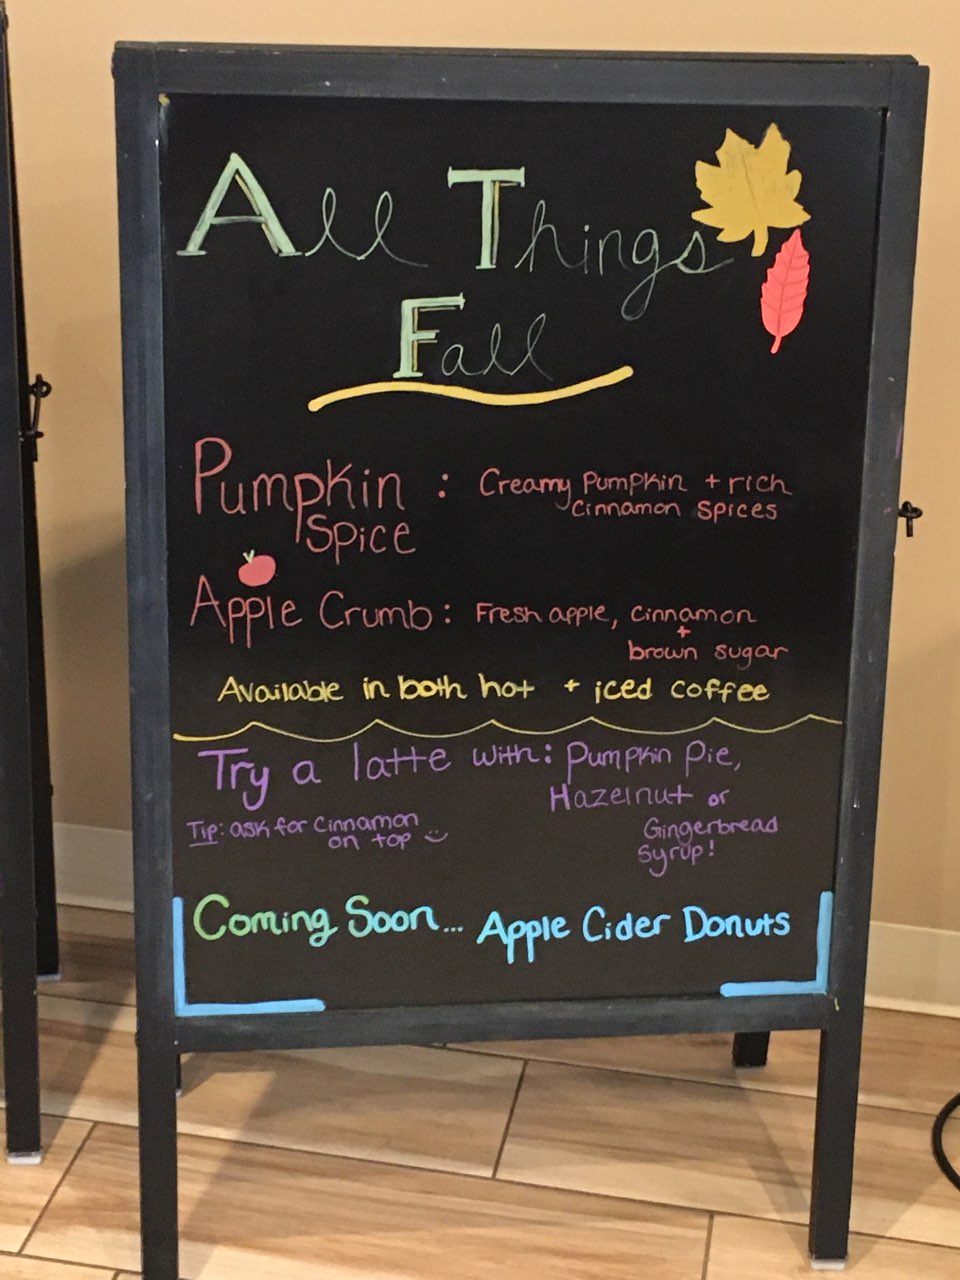 All Things
Fall
Pumpkin : Creamy Pumpkin + rich
Spice cinnamon spices
Apple Crumb: Fresh apple, cinnamon
+
brown sugar
Available in both hot + iced coffee
Try a latte with: Pumpkin Pie,
Hazelnut or
Tip: ask for cinnamon Gingerbread
on top Syrup!
Coming Soon... Apple Cider Donuts